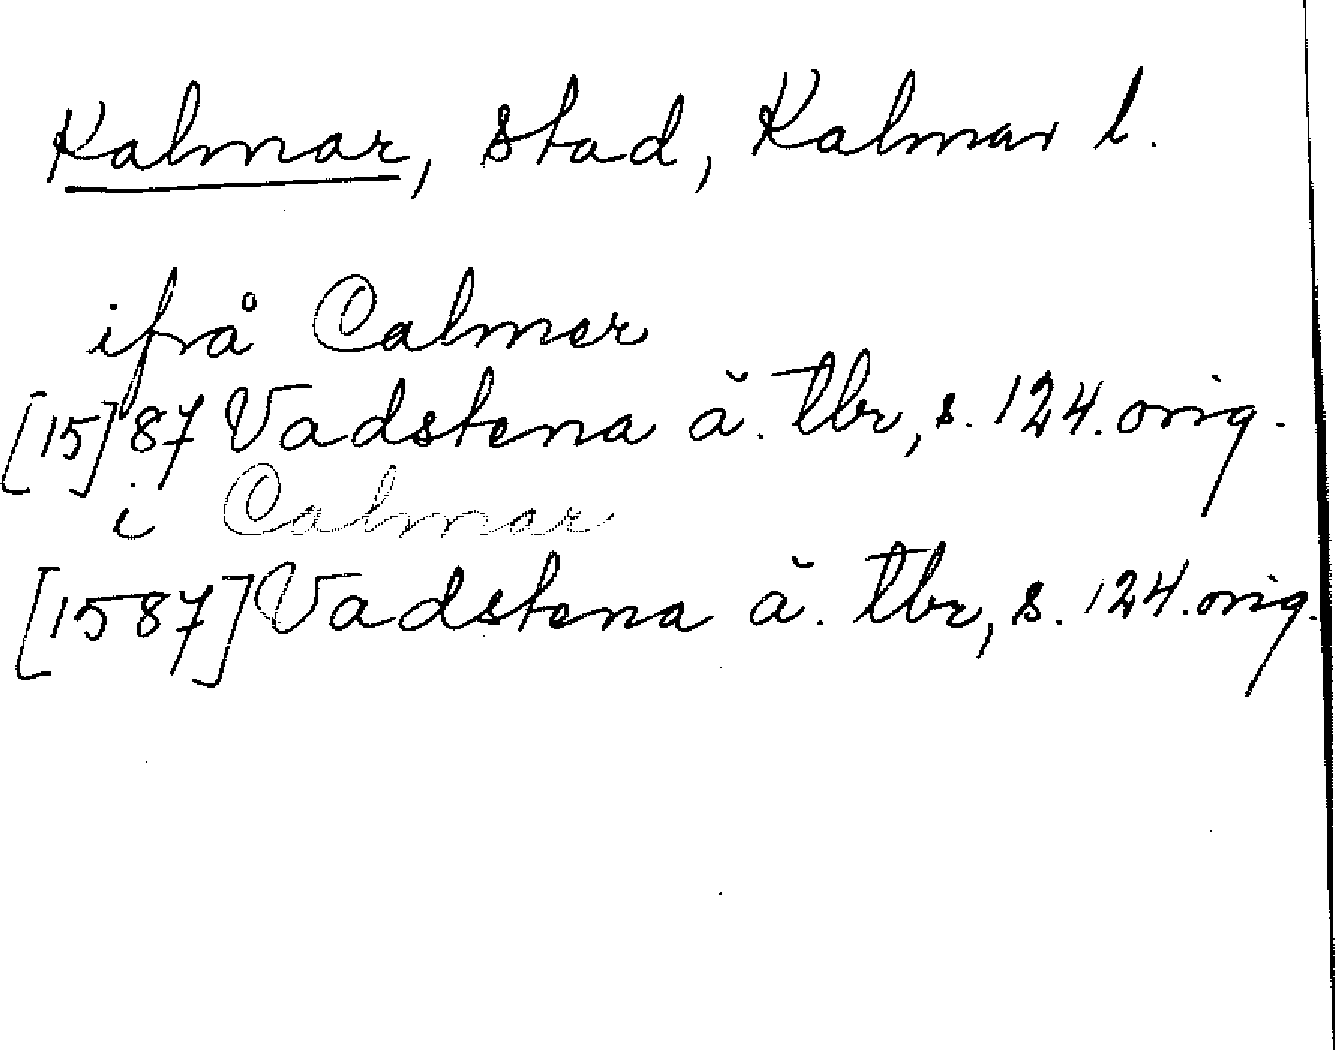 Kalmar, stad, Kalmar l.
ifrå Calmer
[15]87 Vadstena ä. tbr, s. 124. orig.
i Calmar
[1587] Vadstena ä. tbr, s. 124. orig.